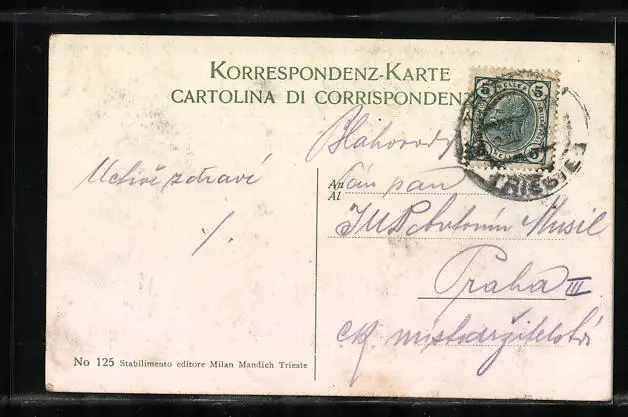 KORRESPONDENZ-KARTE
CARTOLINA DI CORRISPONDENZ
5 HELLER 5
TRIEST 1
Blahorodý
An Pán pan
Al
JUDr Antonín Musil
Praha III
ck. místodržitelství
Uctivé zdraví
No 125 Stabilimento editore Milan Mandich Trieste